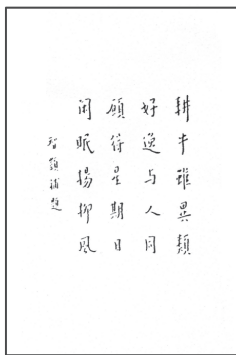 耕牛雖異類
好逸与人同
願待星期日
闲眠楊柳風
智顗補題